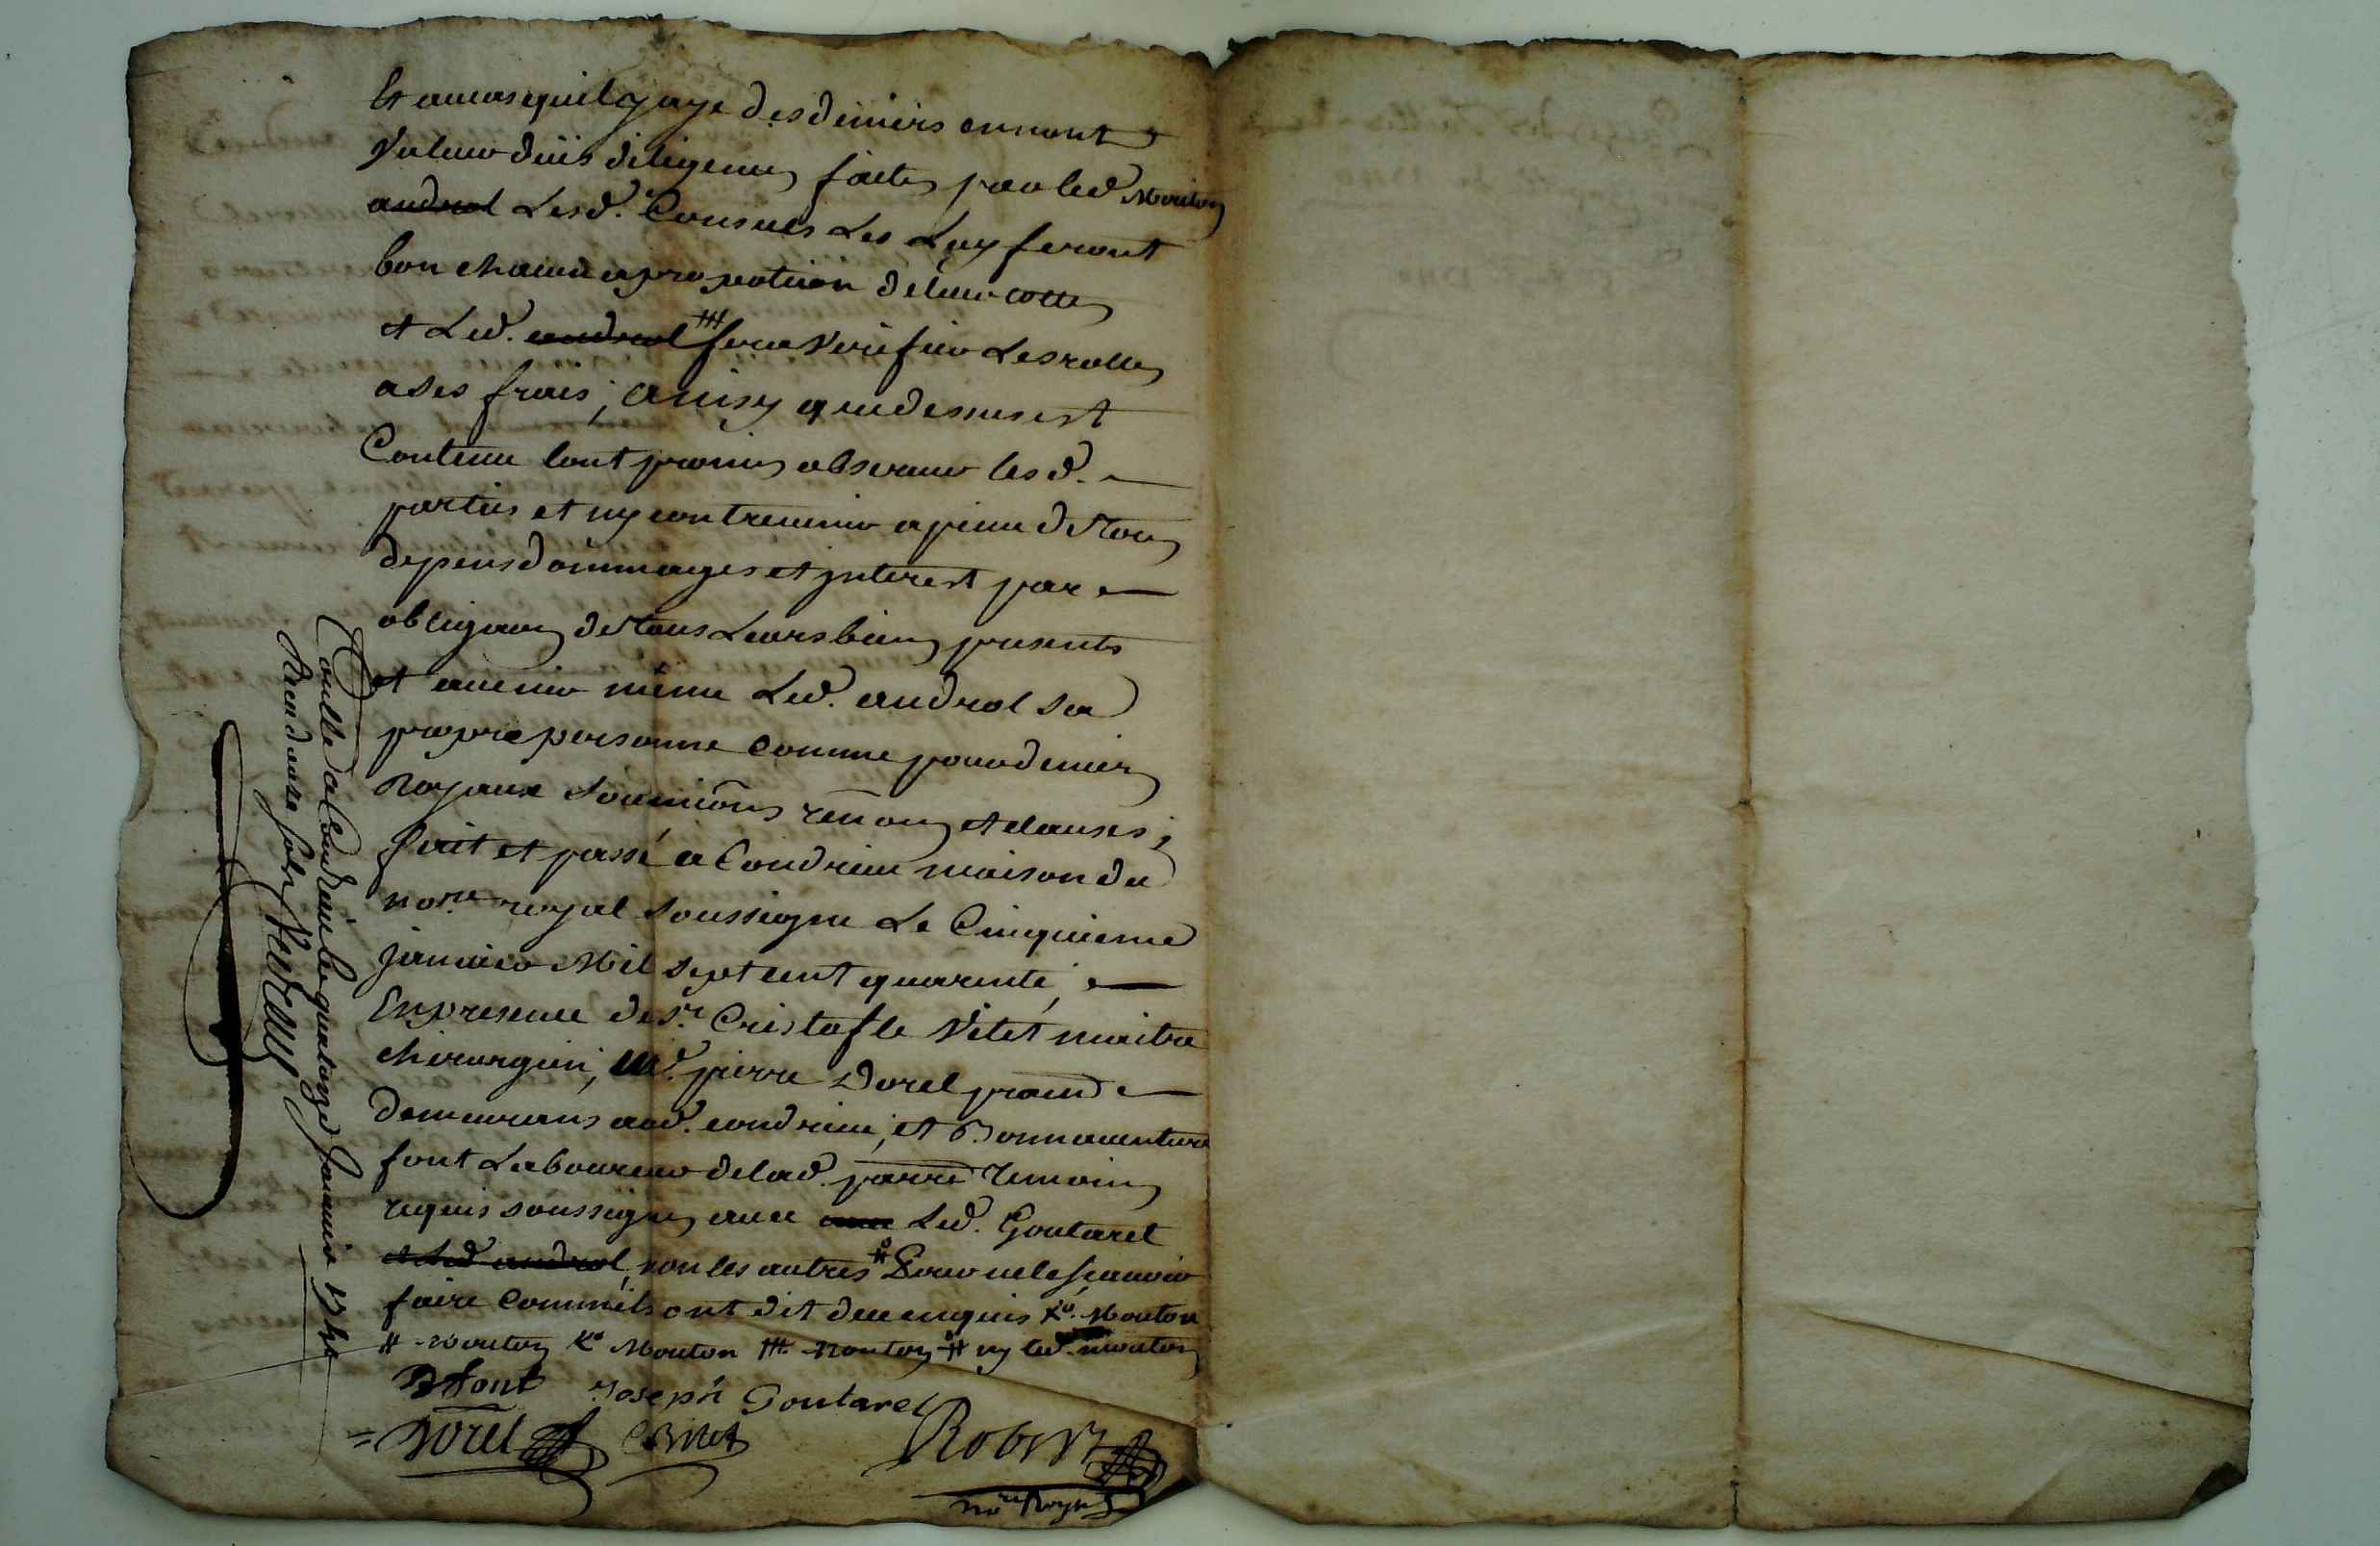 Et au cas quil y aye des deniers en nont
Valeur duës diligences faites par led. Mouton
androl Lesd. Consuls Les Luy feront
bon chacun a proportion de leur cotte
et Led. androl ### fera Verifier Les rolles
a ses frais; a ainsy que dessus est
Contenu lont promis observer lesd.
parties et ny contrevenir a peine de tous
depens dommages et jnterest par
obligaõn de tous Leurs biens presents
et avenir même Led. androl sa
propre personne comme pour deniers
Royaux soumiõns renõns et clauses;
fait et passé a Condrieu maison du
nore. royal soussigne Le Cinquieme
janvier Mil sept cent quarente,
En presence de sr. Cristofle Vitet maitre
chirurgien, Md. pierre Dorel
demeurans aud. condrieu, et Bonnaventure
font Laboureur de lad. parre temoins
requis soussignes avec Led. Goutarel
et Led androl, non les autres # Pour ne le scavoir
faire comm'ils ont dit de ce enquis xo. Mouton
# Mouton xo Mouton ### Mouton # ny led. mouton
B font Joseph Goutarel
Dorel C Vitet Robert
nore Royal
Contlé a Condrieu le quatorze Janvier 1740
Receu douze sols